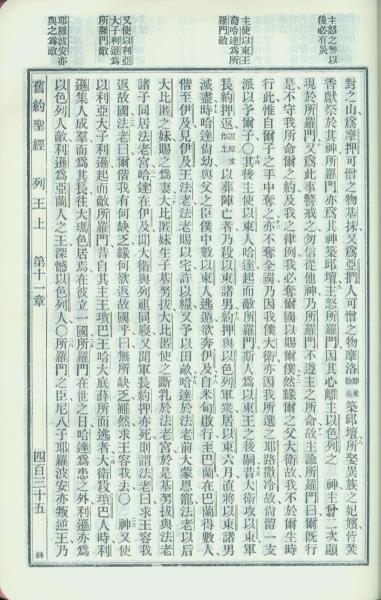 主怒之警以
後必有災
主使以東王
裔哈達爲所
羅門敵
又使以利亞
大子利遜爲
所羅門敵
耶羅波安亦
與之爲敵
對之山爲摩押可憎之物基抹又爲亞捫人可憎之物摩洛築邱壇所娶異族之妃嬪皆焚
香獻祭於其神所羅門亦爲其神築邱壇主怒所羅門因其心離主以色列之 神主曾二次顯
現於所羅門又爲此事警戒之勿信從他神乃所羅門不遵主之所命故主諭所羅門曰爾既行
是不守我所命爾之約及我之律例我必奪爾國以賜爾僕然緣爾之父大衛故我不於爾生時
行此惟自爾子之手中奪之亦不奪全國乃因我僕大衛亦因我所選之耶路撒冷故尙留一支
派以予爾子〇其後主使以東人哈達起而敵所羅門斯人爲以東王之後嗣昔大衛攻以東軍
長約押返返原文作上以葬陣亡者乃殺以東諸男約押與以色列軍衆居以東六月直將以東諸男
滅盡時哈達尙幼與父之臣僕中數以東人逃遁欲奔伊及自米甸啟行至巴蘭在巴蘭得數人
偕至伊及見伊及王法老法老賜以宅許以糧又予以田畝哈達於法老前大蒙恩寵法老以后
大比匿之妹賜之爲妻大比匿妹生子基努拔大比匿使之斷乳於法老宮於是基努拔與法老
諸子同居法老宮哈達在伊及聞大衛與列祖同寢又聞軍長約押亦死則謂法老曰求王容我
返故國法老曰爾偕我有何缺乏緣何欲返故國乎曰無所缺乏雖然求王容我去〇 神又使
以利亞大子利遜起而敵所羅門昔自其主王瑣巴王哈大底薛所而逃者大衛殺瑣巴人時利
遜集人成羣而爲其長往大瑪色居焉在彼立一國所羅門在世之日哈達爲患之外利遜亦爲
以色列人敵利遜爲亞蘭人之王深憾以色列人〇所羅門之臣尼八子耶羅波安亦叛逆王乃
舊約聖經 列王上 第十一章 四百三十五 神